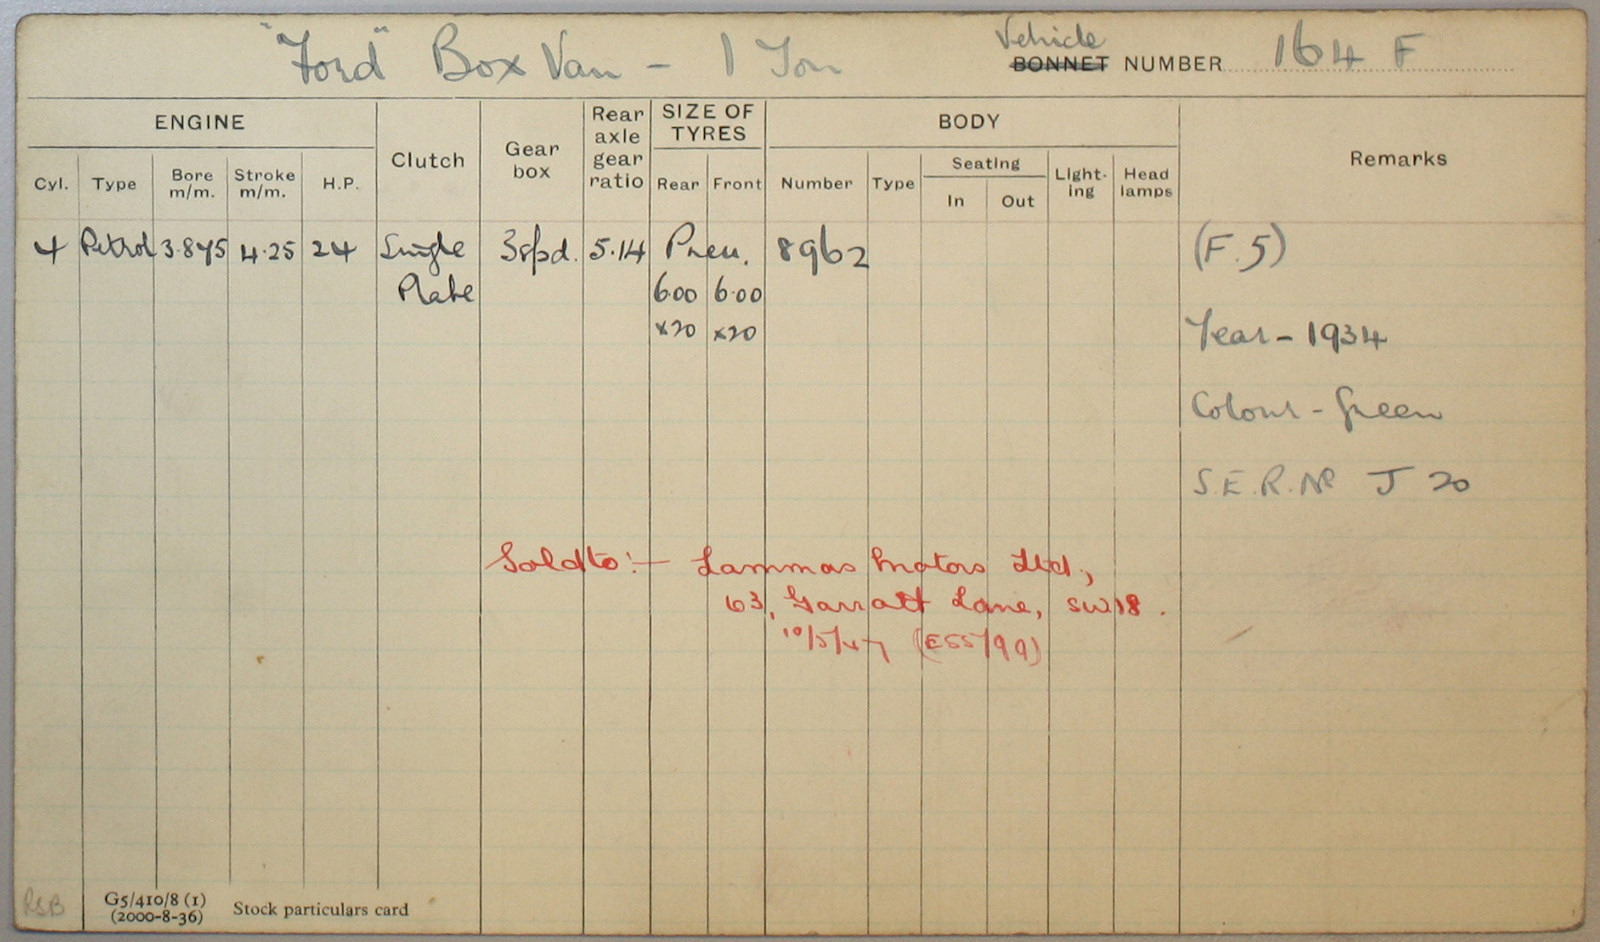 "Ford" Box Van - 1 Ton Vehicle BONNET NUMBER 164 F
ENGINE Clutch Gear box Rear axle gear ratio SIZE OF TYRES BODY Remarks
Cyl. Type Bore m/m. Stroke m/m. H.P. Rear Front Number Type Seating In Out Light-ing Head lamps
4 Petrol 3.875 4.25 24 Single Plate 3 spd. 5.14 Pneu. 8962 (F.5)
6.00 6.00
x20 x20
Year - 1934
Colour - Green
S.E.R. No J 20
Sold to:- Lammas Motors Ltd.,
63, Garratt Lane, SW18.
10/5/47 (ESS/99)
RSB
G5/410/8 (1)
(2000-8-36) Stock particulars card